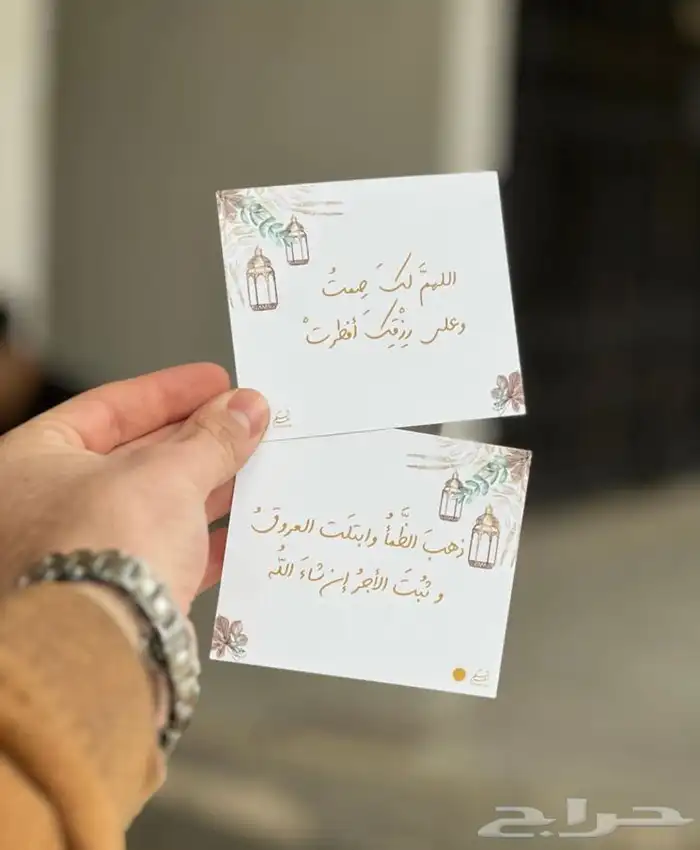 اللهمَّ لكَ صمتُ
وعلى رِزْقِكَ أفطرتْ
ذهبَ الظَّمأُ وابتلَت العروقُ
وثبُتَ الأجرُ إن شاءَ اللَّه
حراج